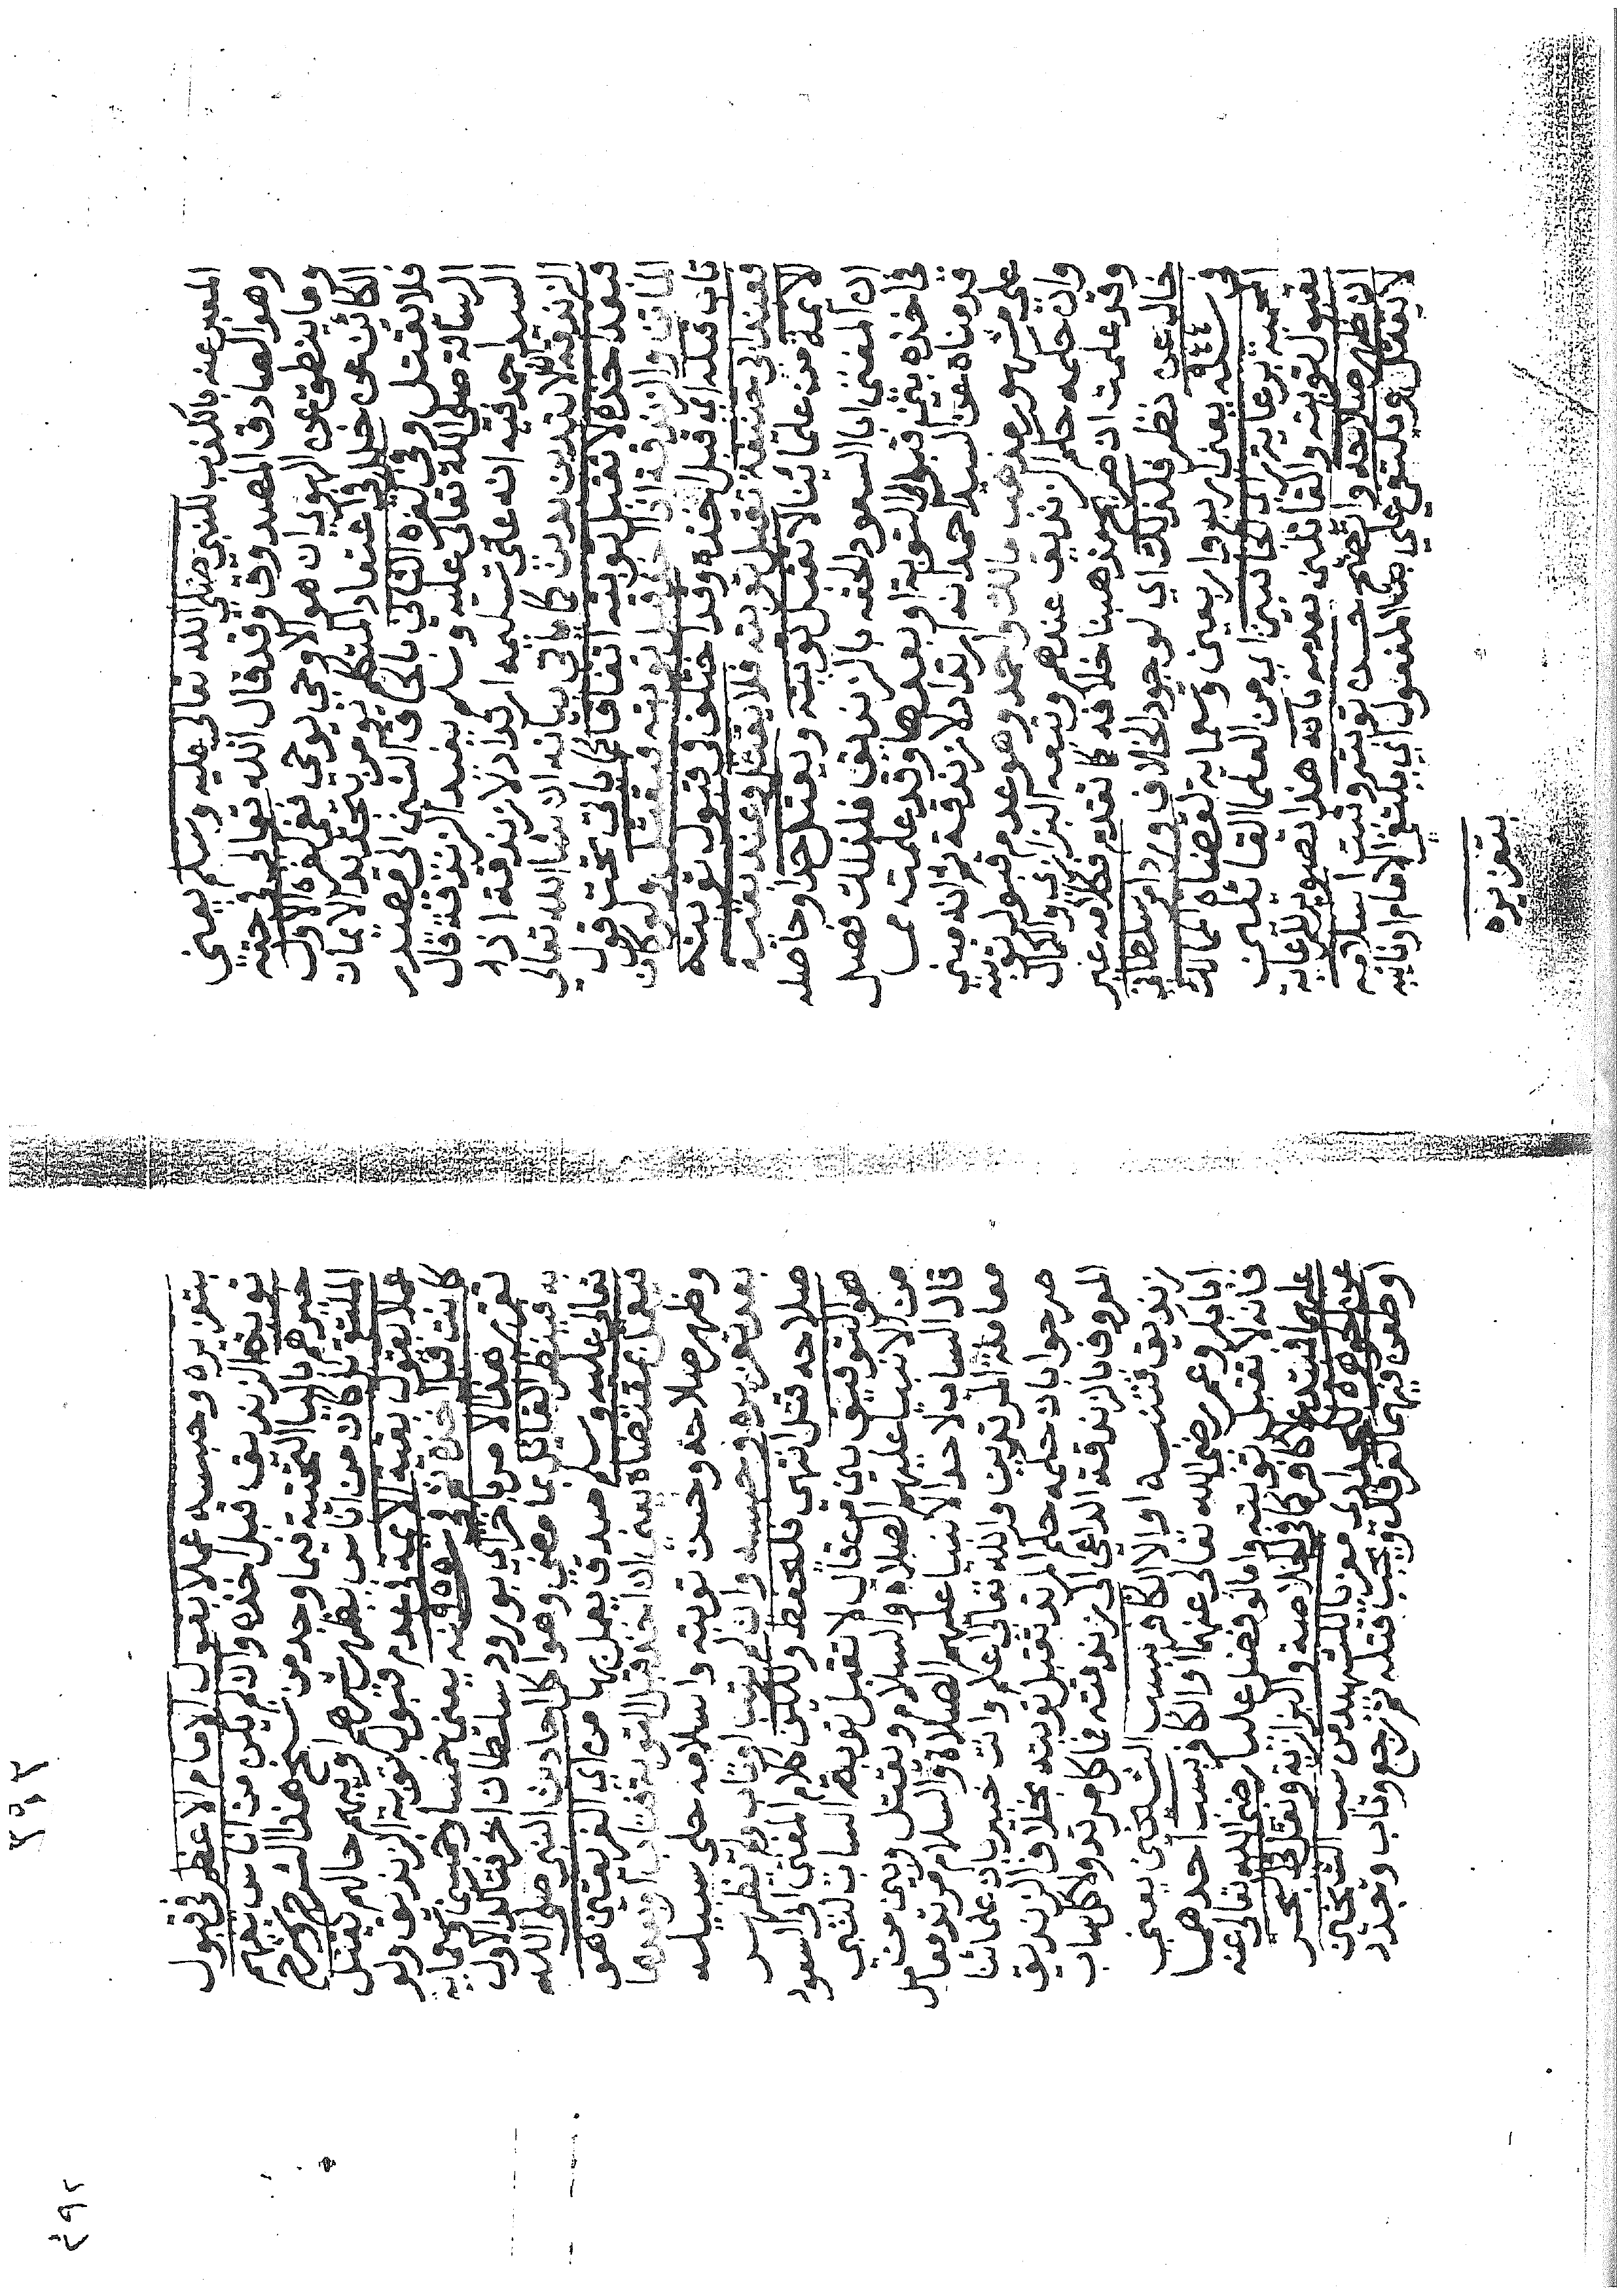 المعبر عنه بالكذب للنبي صلى الله تعالى عليه وسلم يعني
وهو الصادق المصدوق وقد قال الله تعالى في حقه
وما ينطق عن الهوى ان هو الا وحي يوحى ففي كفره الاول
الكائن عن خلل في اعتقاد المتكلم يومر بتجديد الايمان
فلا يقتل وفي كفره الثاني بالحاق الشين الى مصدر
الرسالة صلى الله تعالى عليه وسلم يفيد الزندقة قال
السيد احمد فيه انه على تسليمه ارتداد لا زندقة اذ
الزندقة ان لا تدين بدين كما ياتي بيانه ان شاء الله تعالى
فبعد اخذه لا تقبل توبته اتفاقا لما ياتي تحت قول
الماتن والزندقة اذا اخذ قبل توبته ويقتل ولو كان
تاب قبله اي قبل اخذه وقد اختلف في قبول توبته
فعند ابي حنيفة تقبل توبته فلا يقتل وعند بقية
الائمة من علمائنا لا تقبل توبته ويقتل حدا وحاصله
ان المفتي ابا السعود الحقه بالزنديق فلذلك فصل
في اخذه بين قبول التوبة او بعدها وقد علمت مما
قدمناه عن السيد احمد انه ارتداد لا زندقة ثم انه مبني
على مشهور مذهب مالك واحمد وهو عدم قبول توبته
وان حكمه حكم الزنديق عندهم وتبعه البزازي والكمال
وقد علمت ان صريح مذهبنا خلافه كما تقدم فكلامه غير
خال عن نظر فلذلك اي لوجود الخلاف ورد امر سلطاني
في سنة ٩٤٤ يعني اربع واربعين وتسعماية لقضاة الممالك
المحمية برعاية راي الجانبين اي من العلماء القائلين
بقبول توبته والقائلين بعدمه بانه هذا تصوير للرعاية
ان ظهر صلاحه واتضح حسن توبته وثبت اسلامه
لا يقتل ويكتفي على بناء المفعول اي يكتفي الامام ونائبه
بتعزيره
بتعزيره وحبسه عملا بقول الامام الاعظم في قبول
توبة الزنديق قبل اخذه وان لم يكن من اناس يفهم
خيرهم بالياء التحتية فيما وجد من نسخ هذا الشرح
المليق بل كان من اناس يظهر شرهم اويهم حالهم يقتل
عملا بقول بقية الائمة في عدم قبول توبة الزنديق ولو
كانت قبل اخذه ثم في سنة ٩٥٥ يعني خمس وخمسين وتسعماية
تقرر هذا الامر باخر اي بورود سلطان اخر فتاكد الاول
به فينظر القائل بما مضى وهو اكل احاديث النبي صلى الله
تعالى عليه وسلم صدق يعمل بها من اي الفريقين هو
فيعمل بمقتضاه يعني ان اخذ قبل التوبة فتاب او بعدها
وظهر صلاحه وحسن توبته واسلامه خلي سبيله
بعد تعزيره وحبسه وان لم يتب او تاب ولم يظهر
صلاحه قتل انتهى فليحفظ وليكن كلام المفتي ابو السعود
هو التوفيق بين من قال لا تقبل توبة الساب لنبي
من الانبياء عليهم الصلاة والسلام ويقتل وبين من
قال الساب لاحد الانبياء عليهم الصلاة والسلام مرتد فعامل
معاملة المرتدين والله تعالى اعلم وانت خبير بان علمائنا
صرحوا بان حكمه حكم المرتد تقبل توبته بخلاف الزنديق
المعروف بالزندقة الداعي الى زندقته فما كل مرتد ولا كل ساب
زنديق فتنبه او الا الكافر بسب الشيخين يعني
ابا بكر وعمر رضي الله تعالى عنهما او الكافر بسب احدهما
فانه لا تقبل توبته واما لو فضل عليا رضي الله تعالى عنه
عليهما فمبتدع لا كافر كما في الخلاصة والبزازية ونقل في البحر
عن الجوهرة للحدادي معزيا للشهيد من سب الشيخين
او طعن فيهما كفر ويجب قتله ثم رجع وتاب وتجدد
٣٩٢
٤٩٢